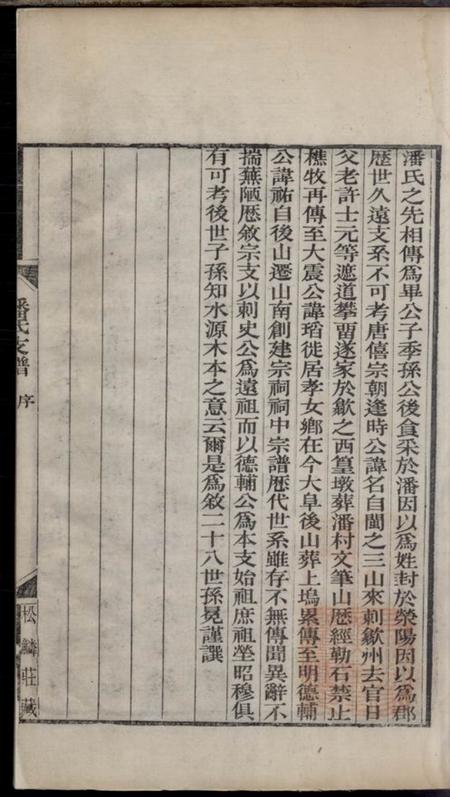 潘氏之先相傳爲畢公子季孫公後食采於潘因以爲姓封於滎陽因以爲郡
歴世久遠支系不可考唐僖宗朝逢時公諱名自閩之三山來刺歙州去官日
父老許士元等遮道攀畱遂家於歙之西篁墩葬潘村文筆山歴經勒石禁止
樵牧再傳至大震公諱瑫徙居孝女鄉在今大阜後山葬上塢累傳至明德輔
公諱祐自後山遷山南創建宗祠祠中宗譜歴代世系雖存不無傳聞異辭不
揣蕪陋歴敘宗支以刺史公爲遠祖而以德輔公爲本支始祖庶祖塋昭穆俱
有可考後世子孫知水源木本之意云爾是爲敘二十八世孫冕謹譔
潘氏支譜
序
松鱗莊藏